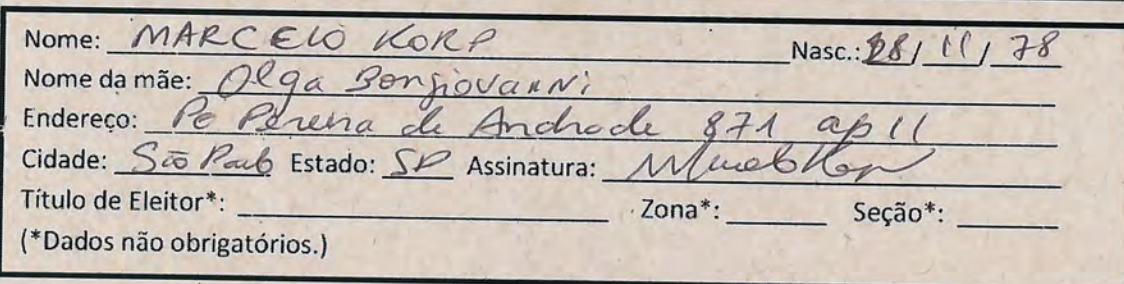 Nome: MARCELO KORP Nasc.: 28/11/78
Nome da mãe: Olga Bongiovanni
Endereço: Pe Pereira de Andrade 871 ap 11
Cidade: São Paulo Estado: SP Assinatura:
Título de Eleitor*: Zona*: Seção*:
(*Dados não obrigatórios.)